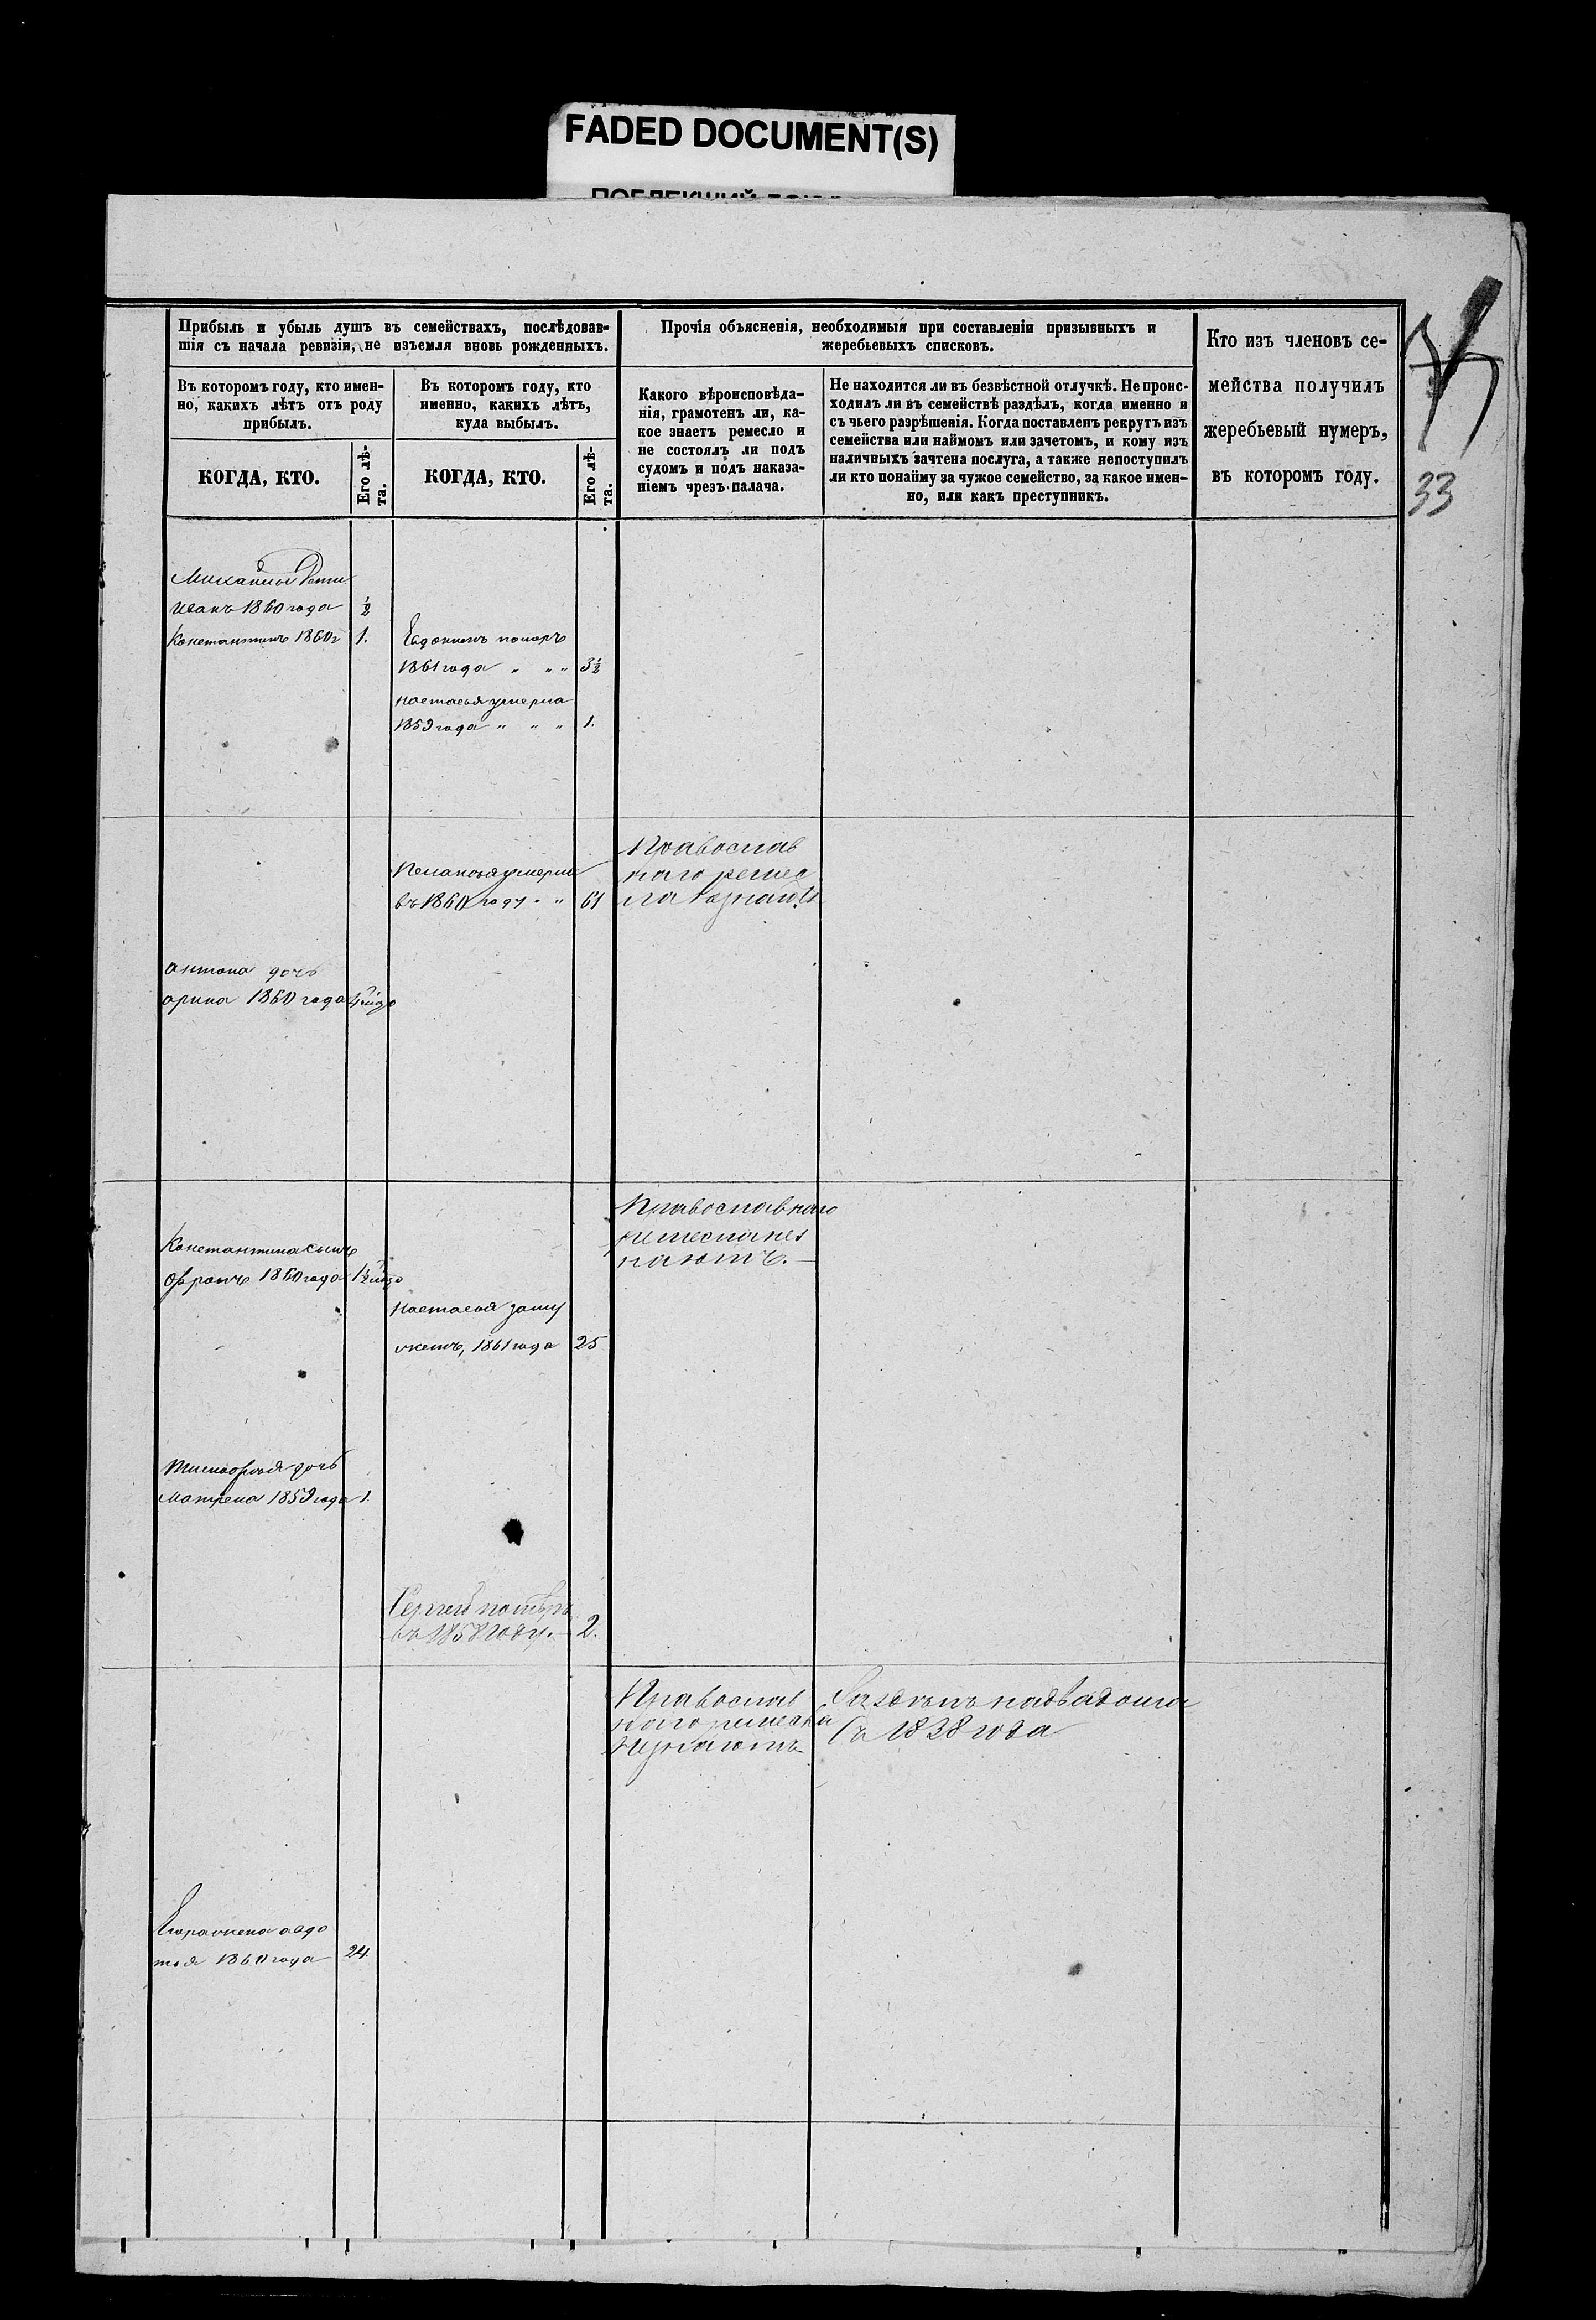 FADED DOCUMENT(S)
Прибыль и убыль душъ въ семействахъ, послѣдовав-
шія съ начала ревизіи, не изъемля вновь рожденныхъ.
Прочія объясненія, необходимыя при составленіи призывныхъ и
жеребьевыхъ списковъ.
Кто изъ членовъ се-
мейства получилъ
жеребьевый нумеръ,
въ которомъ году.
Въ которомъ году, кто имен-
но, какихъ лѣтъ отъ роду
прибылъ.
Въ которомъ году, кто
именно, какихъ лѣтъ,
куда выбылъ.
Какого вѣроисповѣда-
нія, грамотенъ ли, ка-
кое знаетъ ремесло и
не состоялъ ли подъ
судомъ и подъ наказа-
ніемъ чрезъ палача.
Не находится ли въ безвѣстной отлучкѣ. Не проис-
ходилъ ли въ семействѣ раздѣлъ, когда именно и
съ чьего разрѣшенія. Когда поставленъ рекрутъ изъ
семейства или наймомъ или зачетомъ, и кому изъ
наличныхъ зачтена послуга, а также непоступилъ
ли кто понайму за чужое семейство, за какое имен-
но, или какъ преступникъ.
КОГДА, КТО.
Его лѣ-
та.
КОГДА, КТО.
Его лѣ-
та.
33
Михайлы
Иванъ 1860 года ½
Константинъ 1860 г 1.
Евдокимъ помѣръ
1861 года " " " 3½
Настасья умерла
1859 года " " " 1.
умерла
въ 1860 году " " 61
Православ
наго ремес
ла
антона дочь
арина 1860 года
Православнаго
ремесла нез
наютъ.
Константина сынъ
1860 года
Настасья заму
жемъ, 1861 года 25
дочь
матрена 1859 года 1.
Сергей помѣръ
въ 1858 году. 2.
Православ
наго ремесла
незнаютъ
Раздѣлъ на два дома
съ 1838 года
Егора жена авдо
тья 1860 года 24.